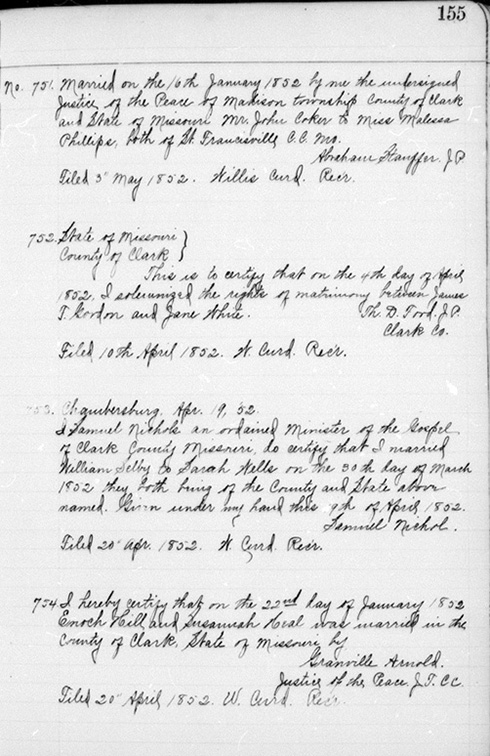 155
No. 751. Married on the 16th January 1852 by me the undersigned
Justice of the Peace of Madison township County of Clark
and State of Missouri Mr. John Coker to Miss Malessa
Phillips, both of St. Francisville C.C. Mo.
Abraham Stauffer. J.P.
Filed 3" May 1852. Willis Curd. Recr.
752. State of Missouri }
County of Clark }
This is to certify that on the 4th day of April
1852. I solemnized the rights of matrimony between James
T. Gordon and Jane White. Th. D. Ford. J.P.
Clark Co.
Filed 10th April 1852. W. Curd. Recr.
753. Chambersburg. Apr. 19, '52.
I Samuel Nichols an ordained Minister of the Gospel
of Clark County Missouri, do certify that I married
William Selby to Sarah Wells on the 30th day of March
1852 they both being of the County and State above
named. Given under my hand this 9th of April 1852.
Samuel Nichol.
Filed 20" Apr. 1852. W. Curd. Recr.
754 I hereby certify that on the 22nd day of January 1852
Enoch Hill and Susannah Neal was married in the
County of Clark, State of Missouri by
Granville Arnold.
Justice of the Peace J.T. CC
Filed 20" April 1852. W. Curd. Recr